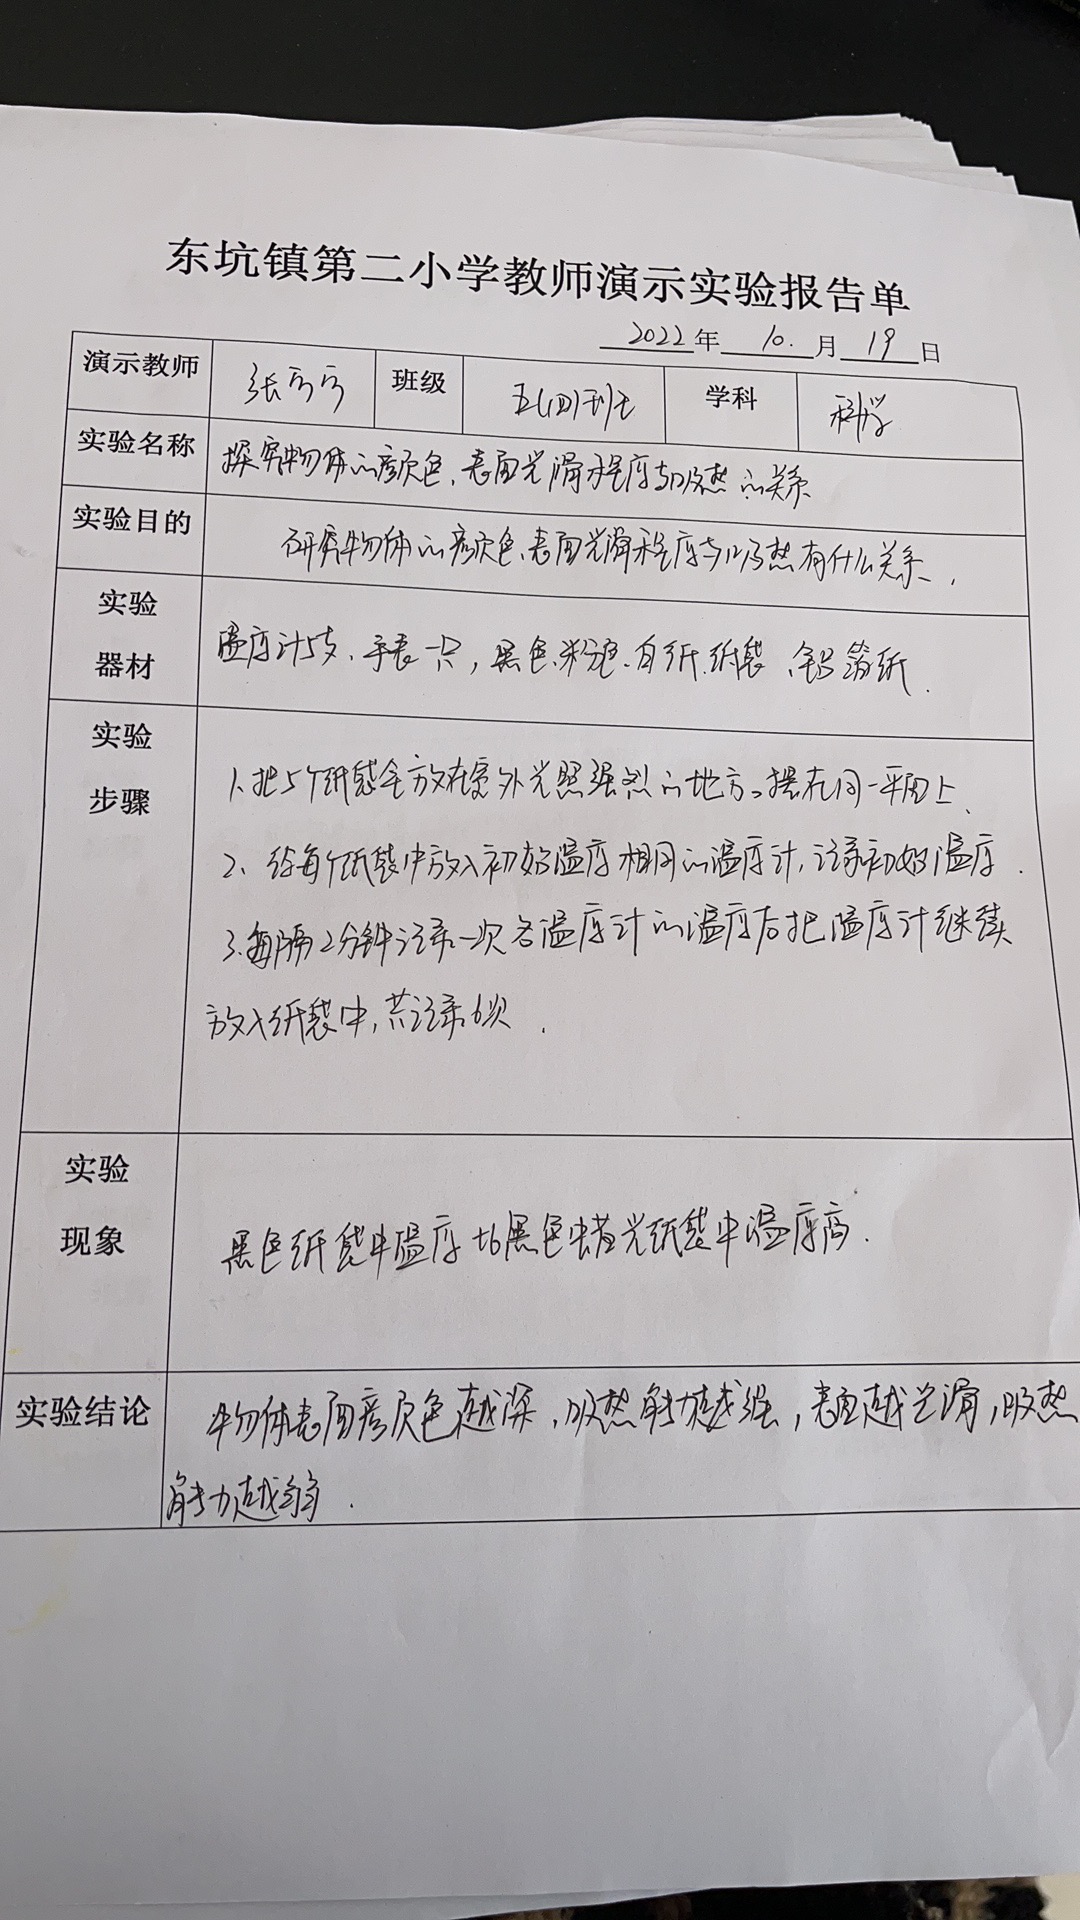 东坑镇第二小学教师演示实验报告单
2022年 10.月 19日
演示教师 张 班级 五(四)班 学科 科学
实验名称 探究物体的颜色、表面光滑程度与吸热的关系
实验目的 研究物体的颜色、表面光滑程度与吸热有什么关系.
实验
器材
温度计5支、手表一只,黑色、粉色、白纸、纸袋、铝箔纸.
实验
步骤
1.把5个纸袋全放在室外光照强烈的地方。摆在同一平面上.
2、给每个纸袋中放入初始温度相同的温度计,记录初始温度.
3.每隔2分钟记录一次各温度计的温度后把温度计继续
放入纸袋中,共记录6次.
实验
现象
黑色纸袋中温度比黑色蜡光纸袋中温度高.
实验结论 物体表面颜色越深,吸热能力越强,表面越光滑,吸热
能力越弱.